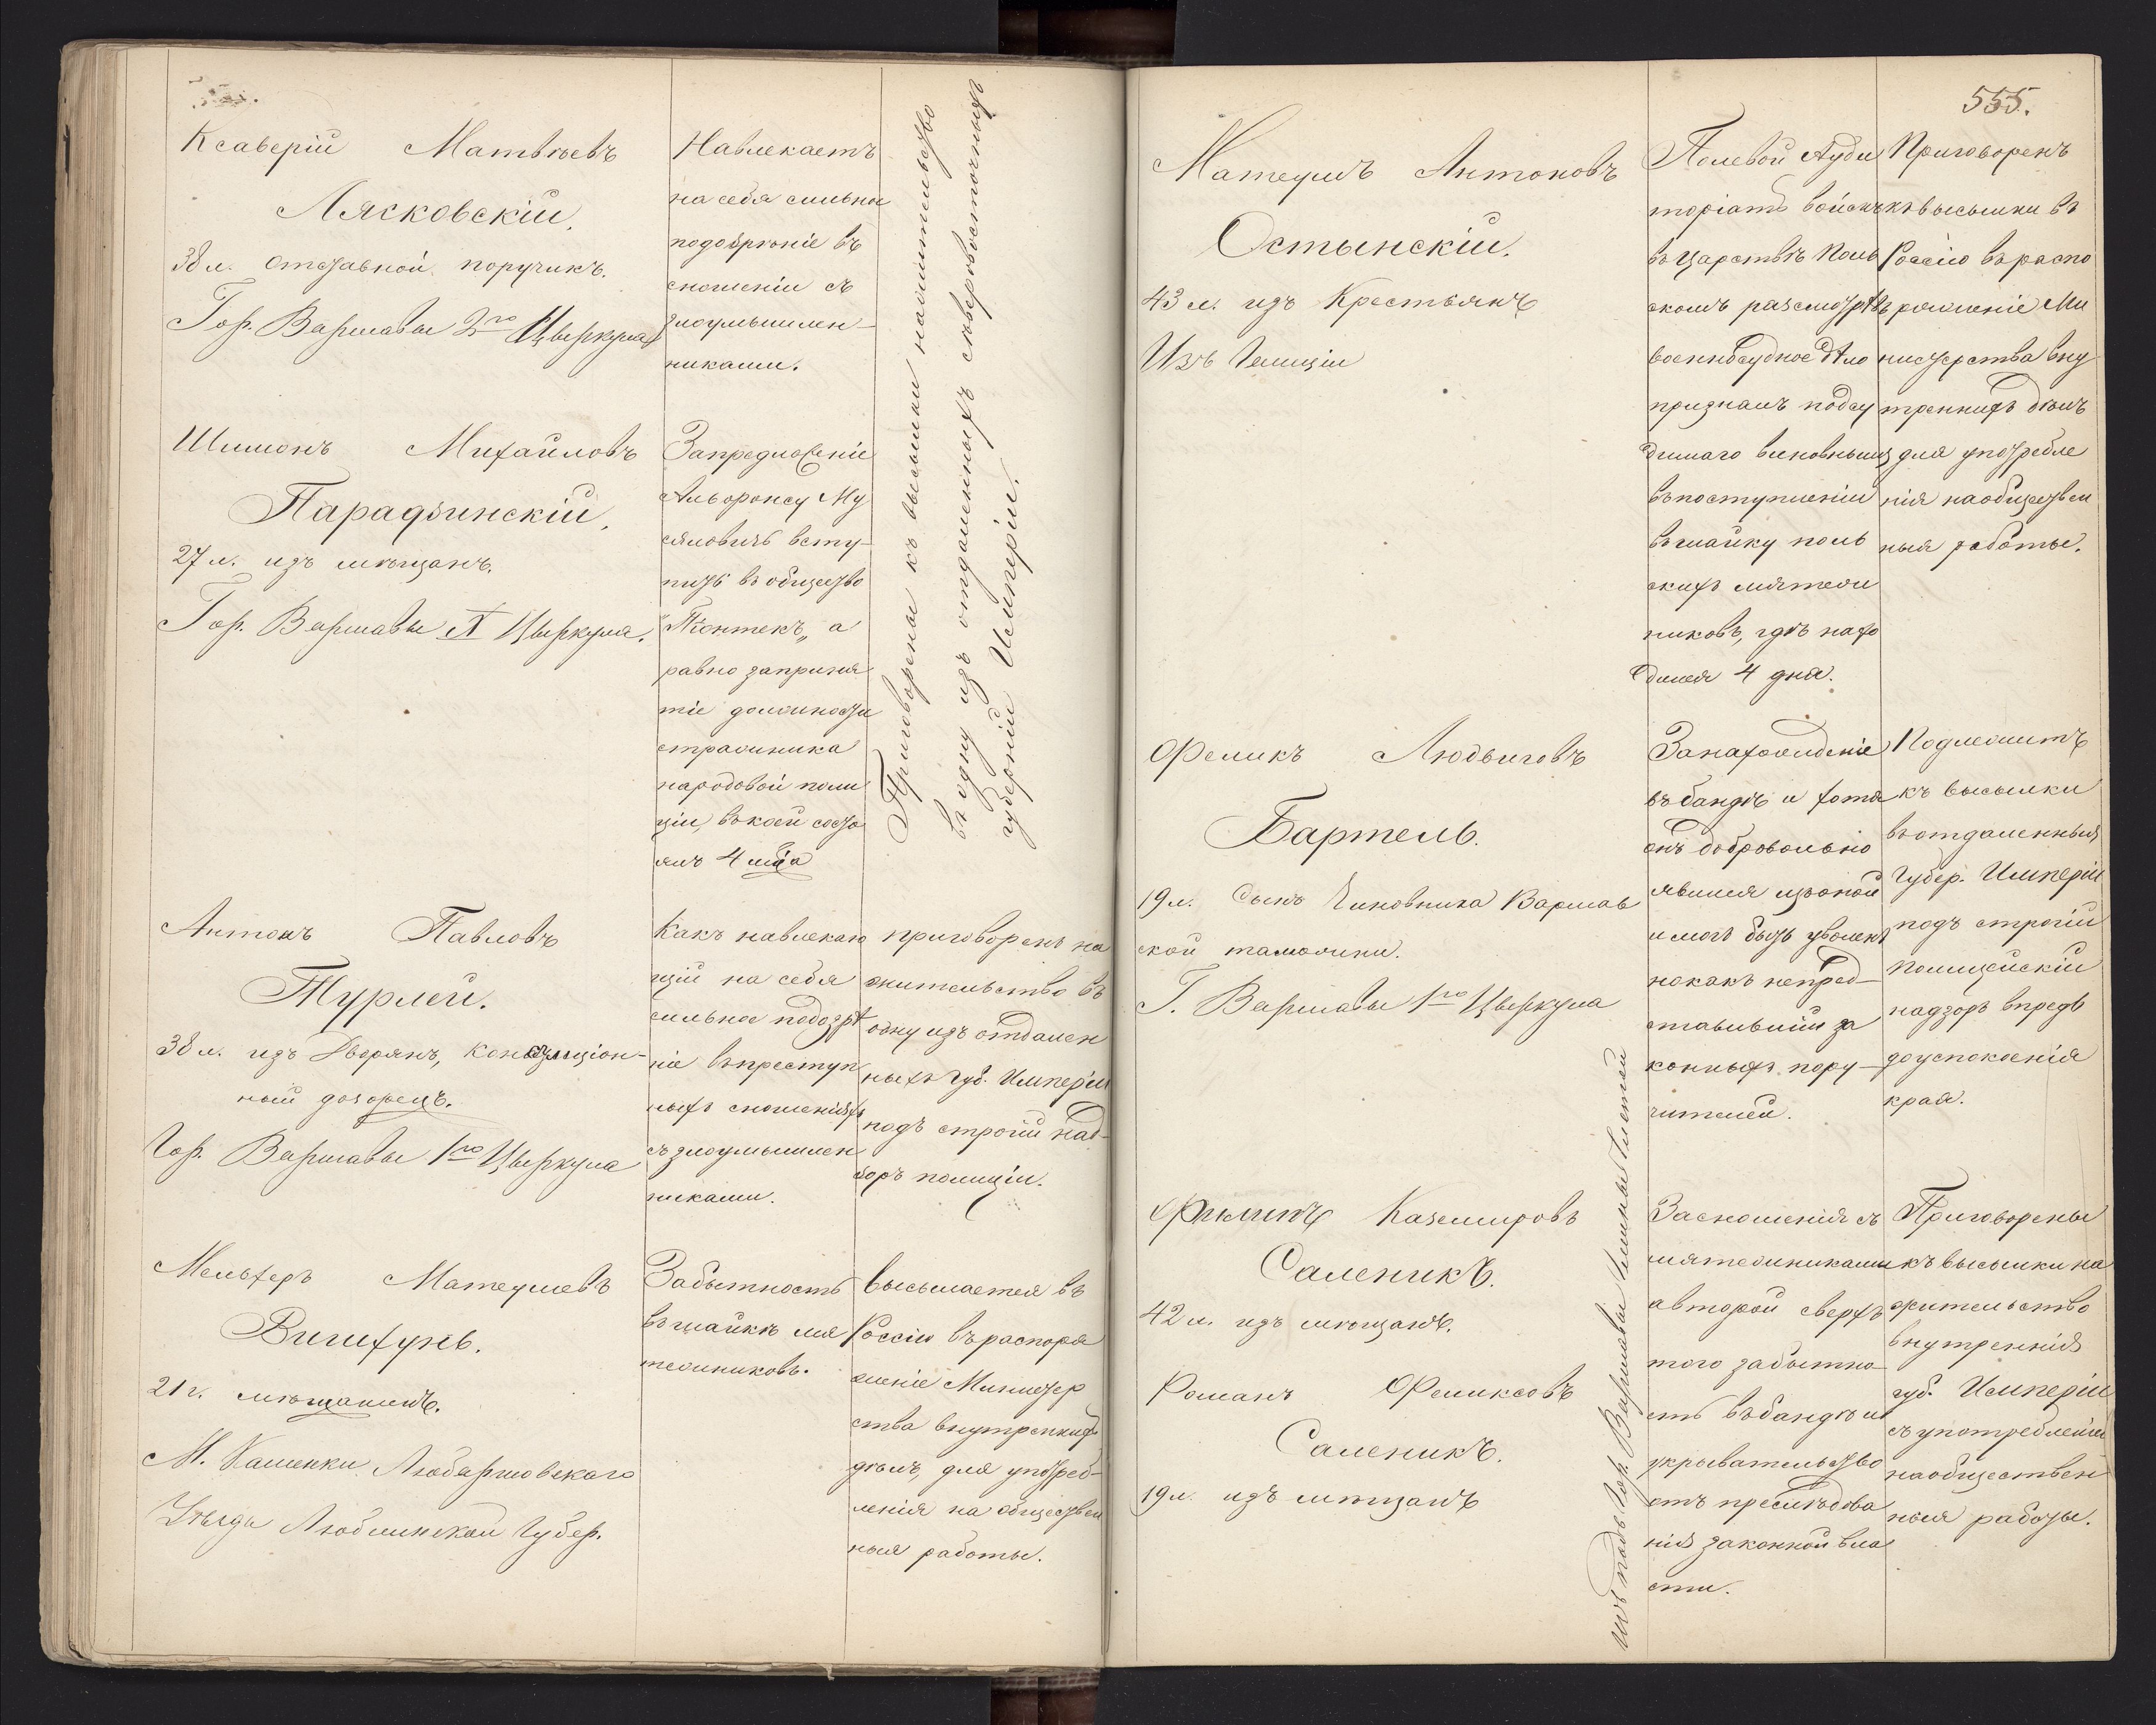 Ксаверій Матвѣевъ
Лясковскій.
38 л. отставной поручикъ.
Гор. Варшавы 2го Цыркула
Навлекаетъ
на себя сильное
подозрѣніе въ
сношеніи съ
злоумышлен-
никами.
Шимонъ Михайловъ
Парадзинскій.
27 л. изъ мѣщанъ.
Гор. Варшавы X Цыркула.
За предложеніе
Альфонсу Му
сяловичъ всту-
пить въ общество
"Піонтекъ„ а
равно за приня
тіе должности
стражника
народовой поли
ціи, въ коей состо
ялъ 4 мѣ́са
Приговорены къ высылки на жительство
въ одну изъ отдаленныхъ сѣверовосточныхъ
губерній Имперіи.
Антонъ Павловъ
Турлей.
38 л. изъ Дворянъ, консумціон-
ный дозорецъ.
Гор. Варшавы 1го Цыркула
Какъ навлекаю
щій на себя
сильное подозрѣ
ніе въ преступ
ныхъ сношеніяхъ
съ злоумышлен
никами.
приговоренъ на
жительство въ
одну изъ отдален
ныхъ Губ. Имперіи
подъ строгій над-
зоръ полиціи.
Мельхеръ Матеушевъ
Вишхунь.
21 г. мѣщанинъ.
М. Каменки Любартовскаго
Уѣзда Люблинской Губер.
За бытность
въ шайкѣ мя
тежниковъ.
высылается въ
Россію въ распоря
женіе Министер
ства внутреннихъ
дѣлъ, для употреб-
ленія на обществен
ныя работы.
555.
Матеушъ Антоновъ
Остынскій.
43 л. изъ Крестьянъ
Изъ Галиціи
Полевой Ауди
торіатъ войскъ
въ Царствѣ Поль
скомъ разсмотрѣвъ
военносудное дѣло
призналъ подсу
димаго виновнымъ
въ поступленіи
въ шайку поль
скихъ мятеж
никовъ, гдѣ нахо
дился 4 дня.
Приговоренъ
къ высылки въ
Россію въ распо
ряженіе Ми
нистерства вну
треннихъ дѣлъ
для употребле
нія на обществен
ныя работы.
Феликъ Людвиговъ
Бартель.
19 л. сынъ Чиновника Варшав
ской таможни.
Г. Варшавы 1го Цыркула
За нахожденіе
въ бандѣ и хотя
онъ добровольно
явился съ повинной
и могъ быть уволенъ
но какъ непред-
ставившій за
конныхъ пору-
чителей.
Подлежитъ
къ высылки
въ отдаленныя
Губер. Имперіи
подъ строгій
полицейскій
надзоръ впредь
до успокоенія
края.
Филипъ Каземировъ
Саленикъ.
42 л. изъ мѣщанъ.
Романъ Феликсовъ
Саленикъ.
19 л. изъ мѣщанъ
За сношенія съ
мятежниками
а второй сверхъ
того за бытно
сть въ бандѣ и
укрывательство
отъ преслѣдова
нія законной вла
сти.
Приговорены
къ высылки на
жительство
внутреннія
губ. Имперіи
съ употребленіемъ
на обществен
ныя работы.